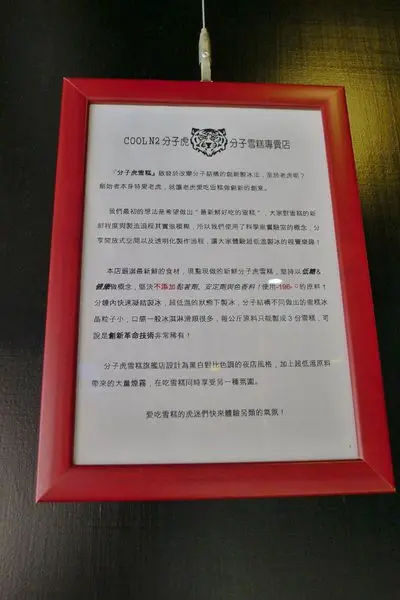 COOLN2 分子虎 分子雪糕專賣店
「分子虎雪糕」啟發於改變分子結構的創新製冰法，至於老虎呢？
創始者本身特愛老虎，就讓老虎愛吃雪糕做創新的創意。
我們最初的想法是希望做出“最新鮮好吃的雪糕”，大家對雪糕的新
鮮程度與製造過程其實很模糊，所以我們使用了科學廚實驗室的概念，分
享開放式空間以及透明化製作過程，讓大家體驗超低溫製冰的視覺樂趣！
本店嚴選最新鮮的食材，現點現做的新鮮分子虎雪糕，堅持以低糖&
健康做概念，堅決不添加黏著劑、安定劑與色香料！使用-196°C的原料1
分鐘內快速凝結製冰，超低溫的狀態下製冰，分子結構不同做出的雪糕冰
晶粒子小，口感一般冰淇淋滑順很多，每公斤原料只能製成3份雪糕，可
說是創新革命技術非常稀有！
分子虎雪糕旗艦店設計為黑白對比色調的夜店風格，加上超低溫原料
帶來的大量煙霧，在吃雪糕同時享受另一種氛圍。
愛吃雪糕的虎迷們快來體驗另類的氣氛！